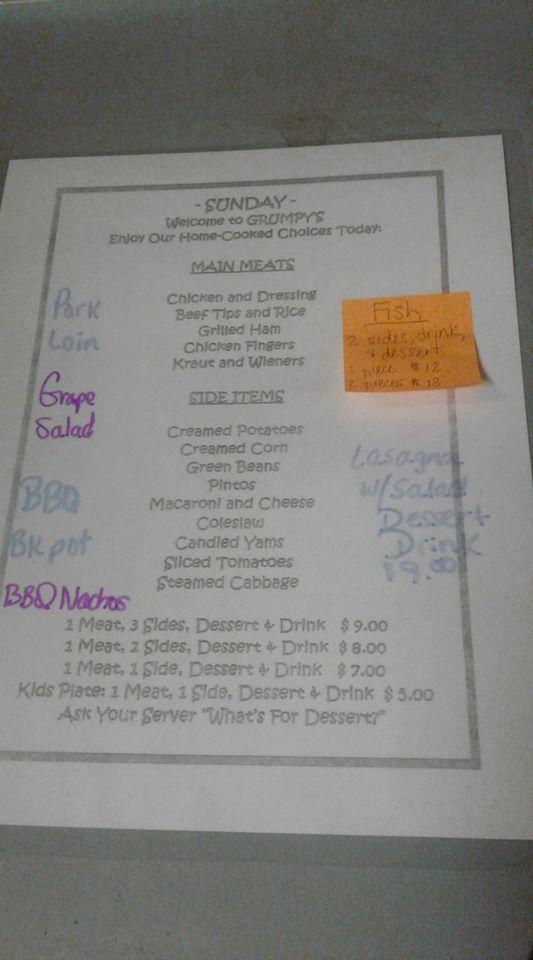 - SUNDAY -
Welcome to GRUMPY'S
Enjoy Our Home-Cooked Choices Today:
MAIN MEATS
Chicken and Dressing
Beef Tips and Rice
Grilled Ham
Chicken Fingers
Kraut and Wieners
SIDE ITEMS
Creamed Potatoes
Creamed Corn
Green Beans
Pintos
Macaroni and Cheese
Coleslaw
Candied Yams
Sliced Tomatoes
Steamed Cabbage
1 Meat, 3 Sides, Dessert & Drink $9.00
1 Meat, 2 Sides, Dessert & Drink $8.00
1 Meat, 1 Side, Dessert & Drink $7.00
Kids Plate: 1 Meat, 1 Side, Dessert & Drink $5.00
Ask Your Server "What's For Dessert?"
Pork
Loin
Grape
Salad
BBQ
BK pot
BBQ Nachos
Fish
2 sides, drink,
& dessert
1 piece $12
2 pieces $13
Lasagna
w/Salad
Dessert
Drink
$9.00